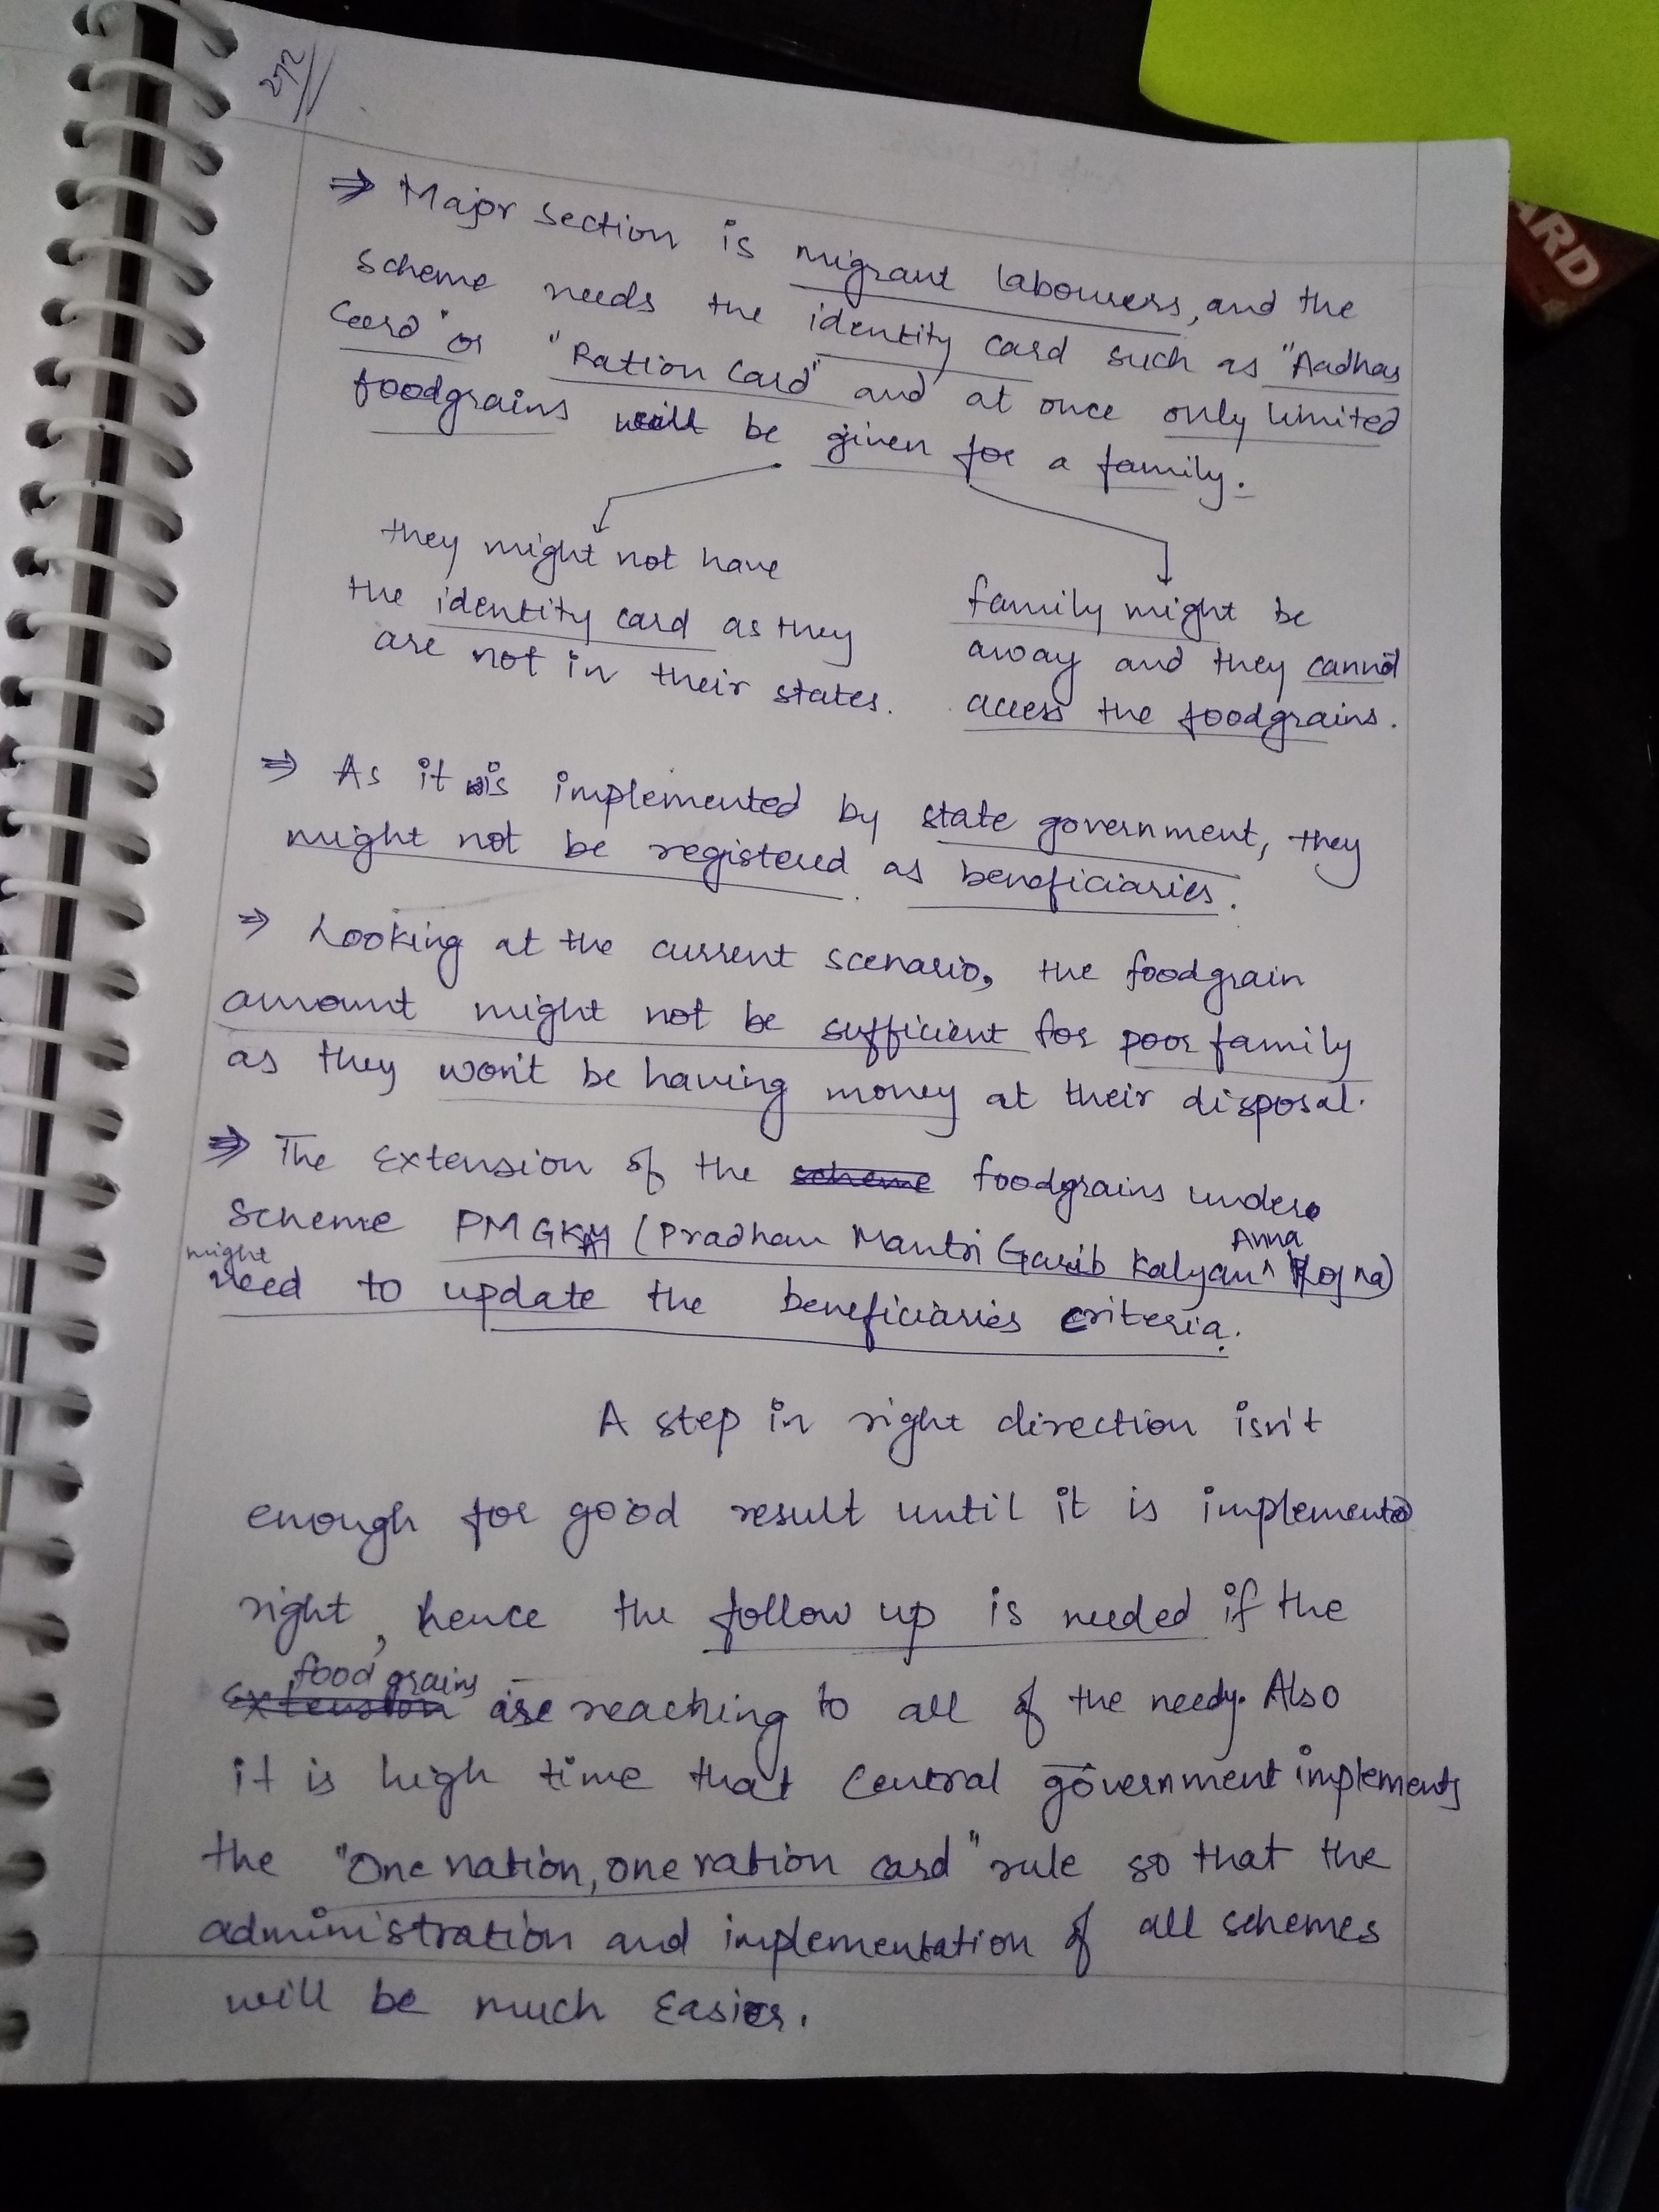 272
ARD
⇒ Major section is migrant labourers, and the
scheme needs the identity card such as "Aadhar
Card" or "Ration Card" and at once only limited
foodgrains will be given for a family.
they might not have
the identity card as they
are not in their states.
family might be
away and they cannot
access the foodgrains.
⇒ As it is implemented by state government, they
might not be registered as beneficiaries.
⇒ Looking at the current scenario, the foodgrain
amount might not be sufficient for poor family
as they won't be having money at their disposal.
⇒ The extension of the scheme foodgrains under
scheme PMGKAY (Pradhan Mantri Garib Kalyan Anna Yojna)
might need to update the beneficiaries criteria.
A step in right direction isn't
enough for good result until it is implemented
right, hence the follow up is needed if the
extension food grains are reaching to all of the needy. Also
it is high time that Central government implements
the "One nation, one ration card" rule so that the
administration and implementation of all schemes
will be much easier.